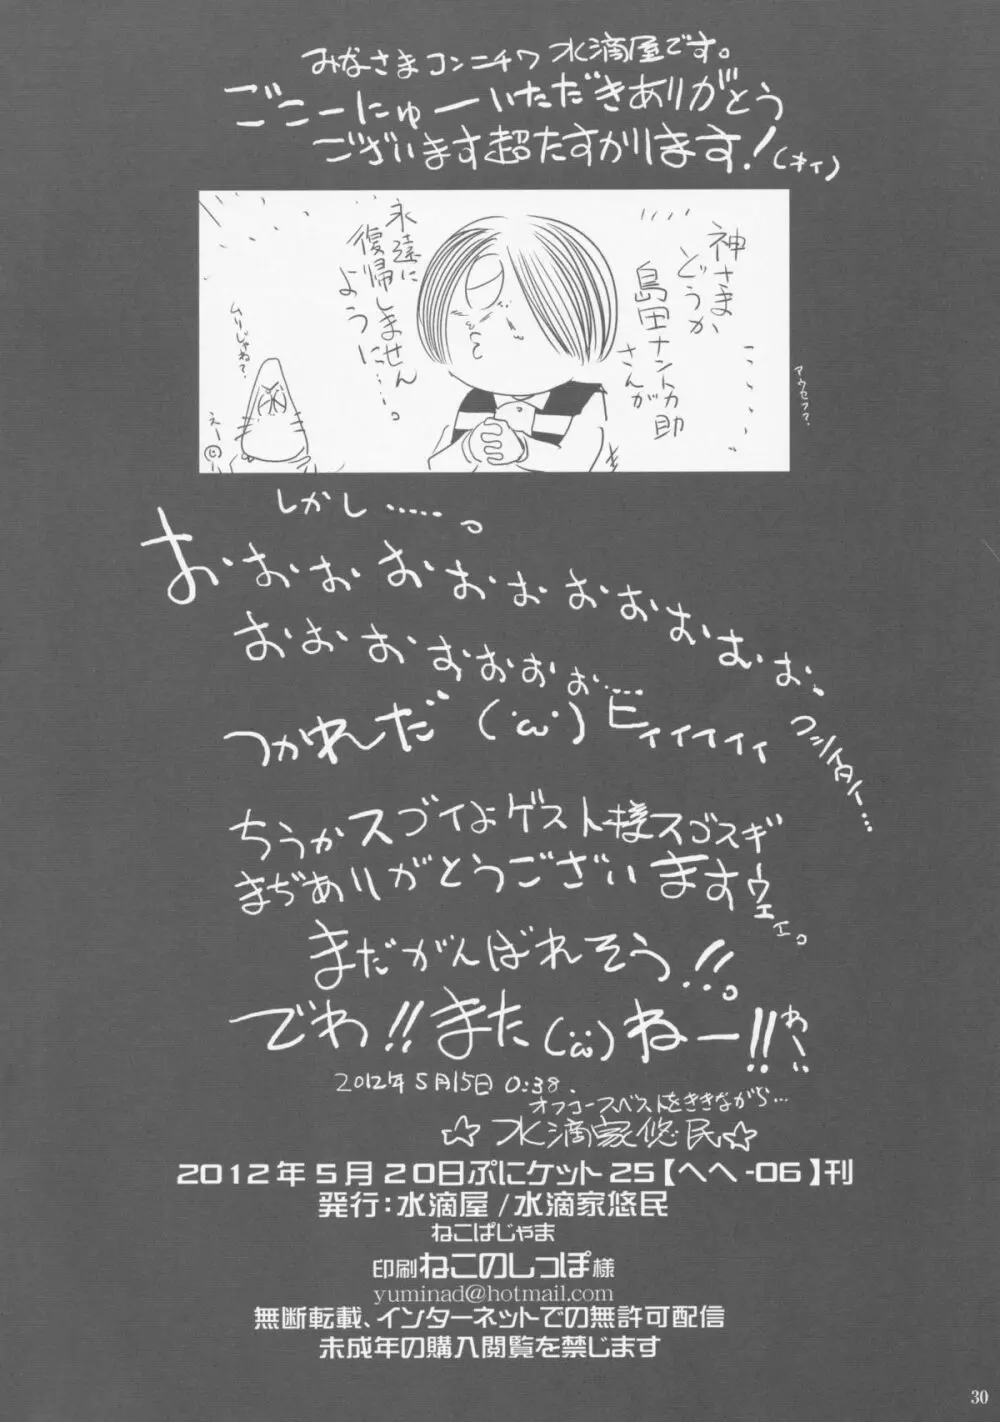 みなさまコンニチワ 水滴屋です。
ごこーにゅーいただきありがとう
ございます超たすかります!(オイ)
神さま
どうか
島田ナントカ助
さんが
永遠に
復帰しません
ように…。
ムリじゃね?
えー
しかし……。
おおおおおおおおおおお
おおおおおおお……
つかれだ (´ω`) ヒィィイィィ
ちうかスゴイよゲスト様スゴスギ
まぢありがとうございますーウェェ。
まだがんばれそう!!。
でわ!!また(´ω`)ねー!!
わーい
2012年5月15日 0:38.
オフコースベストをききながら…
☆水滴家悠民☆
2012年5月20日ぷにケット25【へへ-06】刊
発行:水滴屋/水滴家悠民
ねこぱじゃま
印刷ねこのしっぽ様
yuminad@hotmail.com
無断転載、インターネットでの無許可配信
未成年の購入閲覧を禁じます
30